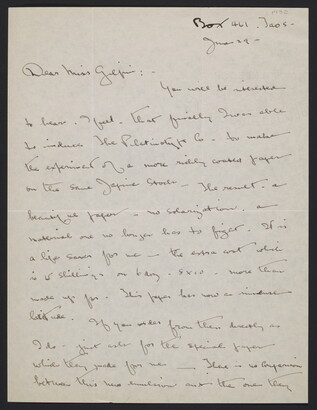 Box 461. Taos -
June 29 -
Dear Miss Gilpin: -
You will be interested
to hear, I feel, that finally I was able
to induce The Platinotype Co. to make
the experiment of a more richly coated paper
on the same Japine Stock - The result, a
beautiful paper - no solarization, a
material one no longer has to fight. It is
a life saver for me - the extra cost which
is 15 shillings on 6 doz. 8x10 - more than
made up for. This paper has now an
latitude.
If you order from them directly as
I do - just ask for the special paper
which they made for me - There no comparison
between this new emulsion and the one they